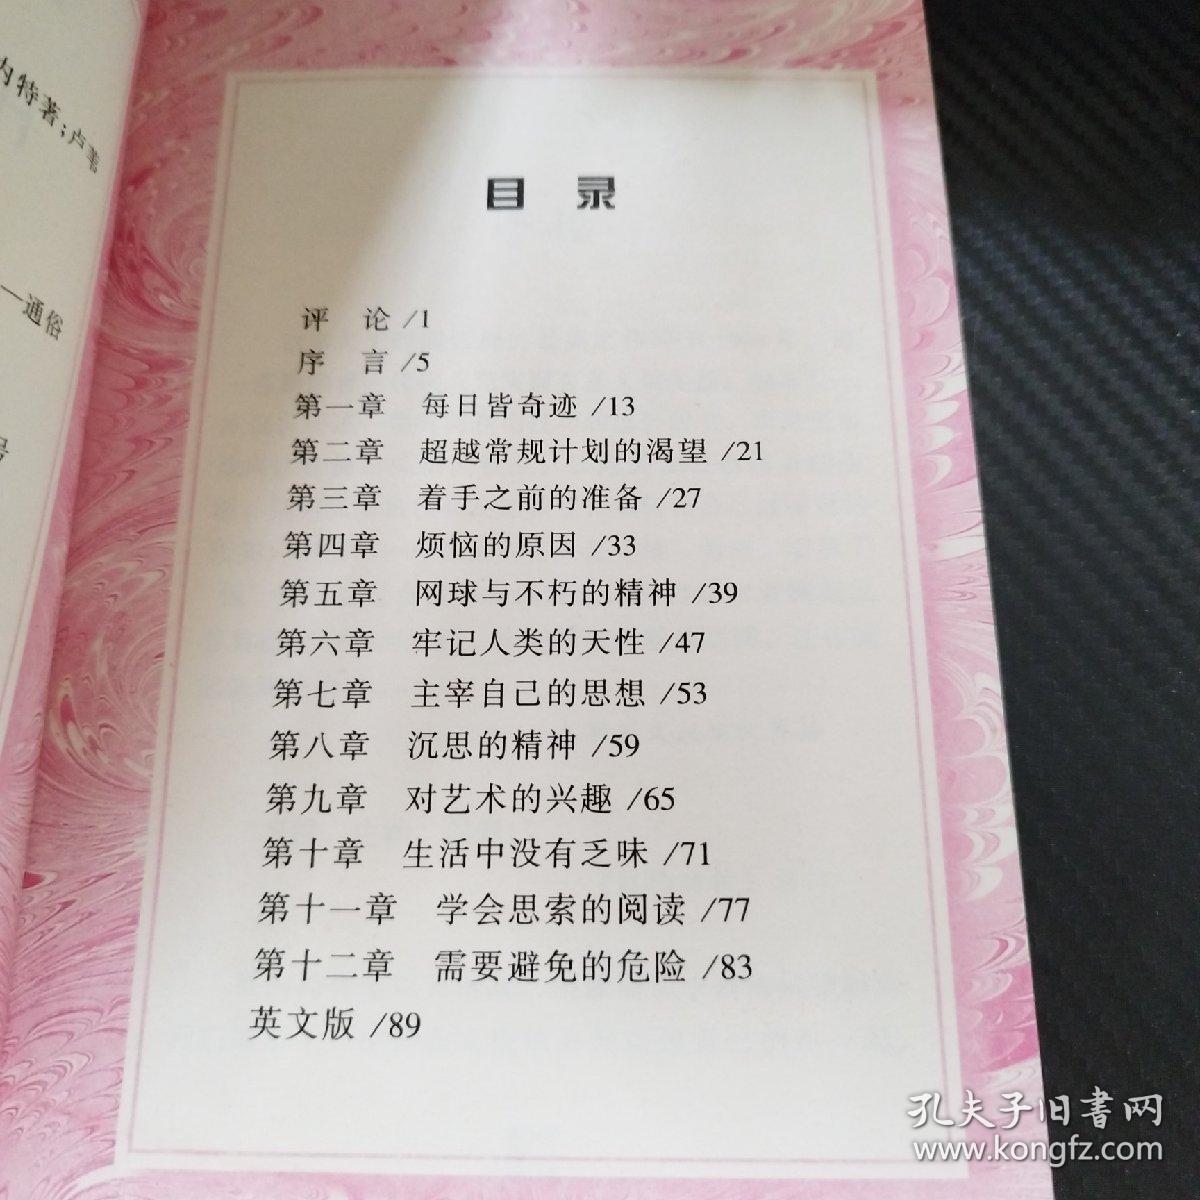 内特著；卢苇
—通俗
号
目 录
评 论 /1
序 言 /5
第一章 每日皆奇迹 /13
第二章 超越常规计划的渴望 /21
第三章 着手之前的准备 /27
第四章 烦恼的原因 /33
第五章 网球与不朽的精神 /39
第六章 牢记人类的天性 /47
第七章 主宰自己的思想 /53
第八章 沉思的精神 /59
第九章 对艺术的兴趣 /65
第十章 生活中没有乏味 /71
第十一章 学会思索的阅读 /77
第十二章 需要避免的危险 /83
英文版 /89
孔夫子旧书网
www.kongfz.com